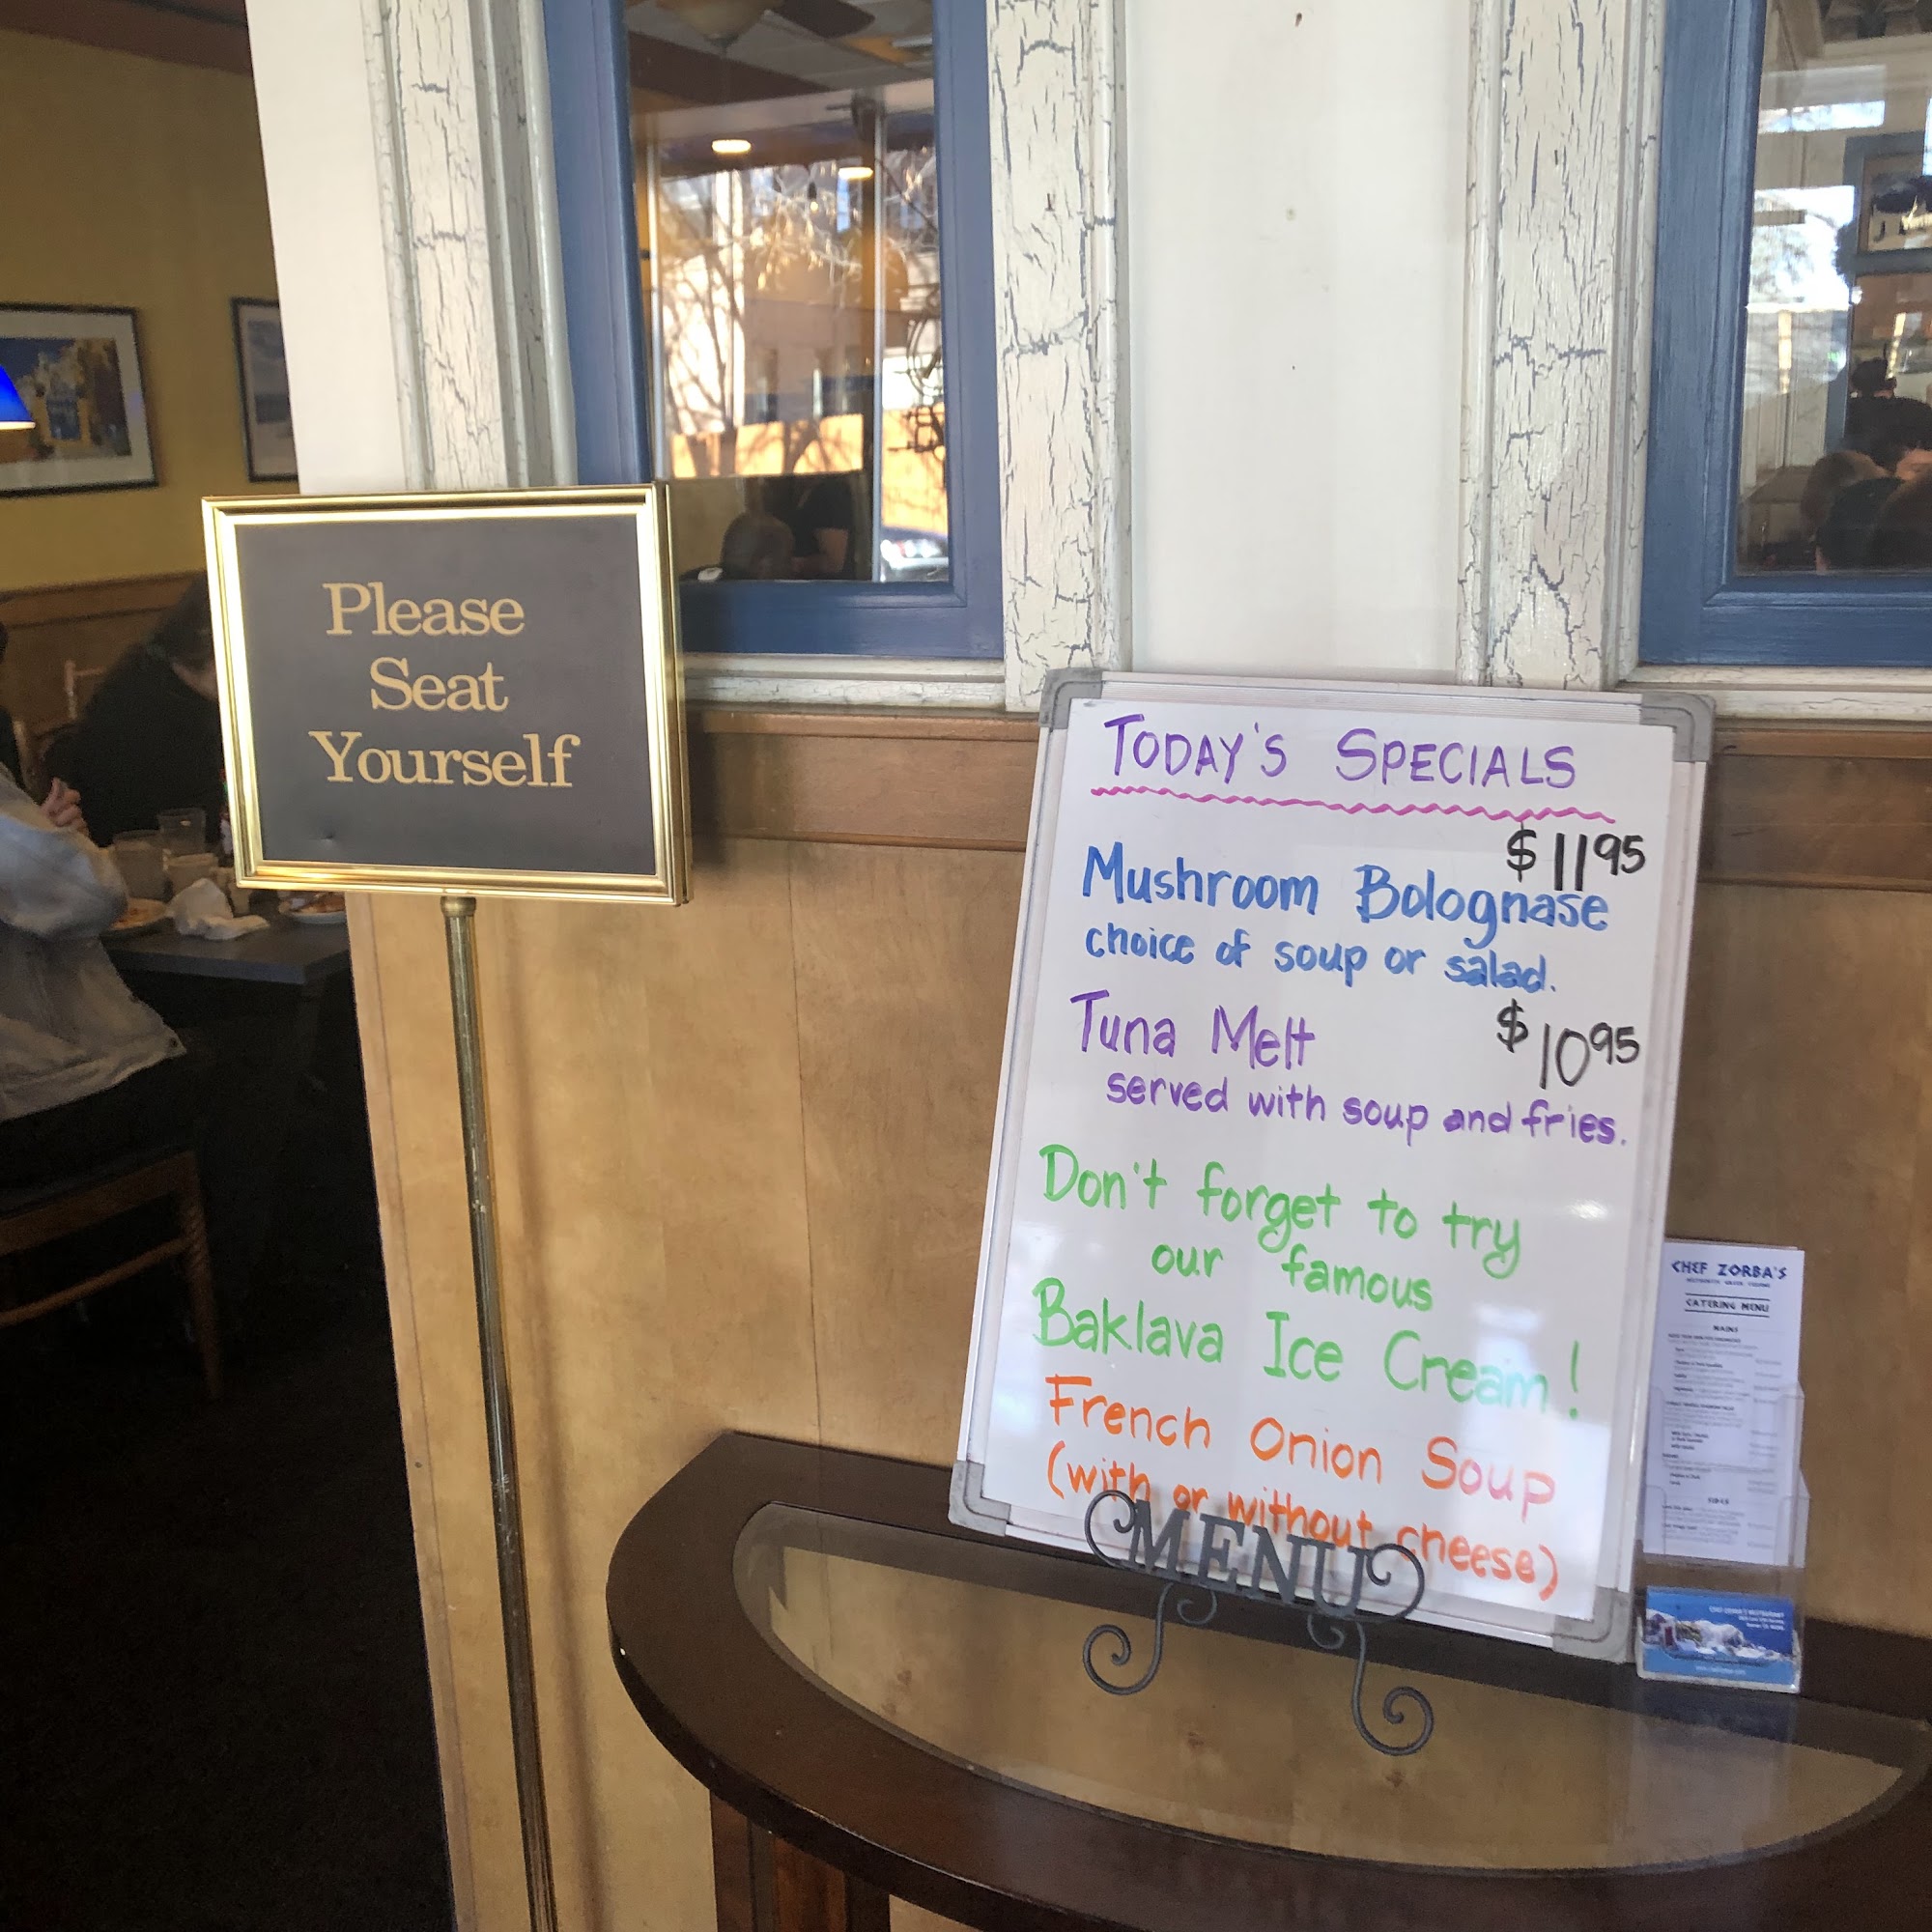 Please
Seat
Yourself
TODAY'S SPECIALS
$1195
Mushroom Bolognase
choice of soup or salad.
Tuna Melt $1095
served with soup and fries.
Don't forget to try
our famous
Baklava Ice Cream!
French Onion Soup
(with or without cheese)
MENU
CHEF ZORBA'S
CATERING MENU
MAINS
SIDES